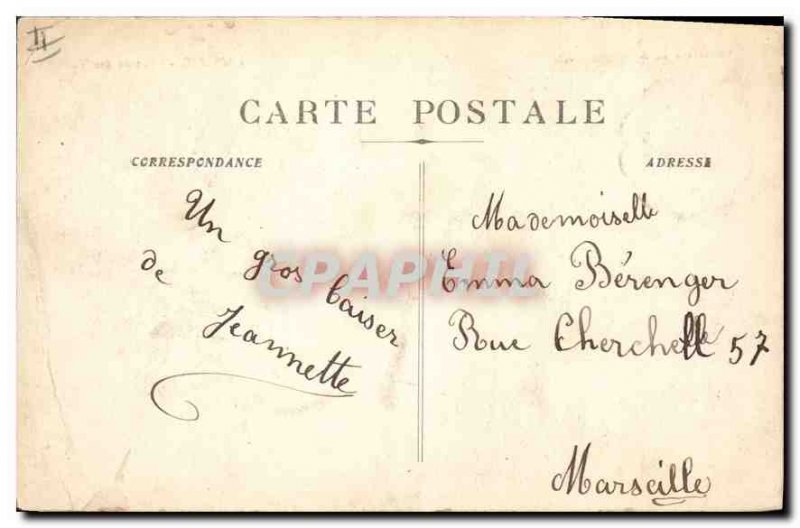 II
CARTE POSTALE
CORRESPONDANCE
ADRESSE
Un gros baiser
de Jeannette
Mademoiselle
Emma Bérenger
Rue Cherchelle 57
Marseille
CPAPHIL